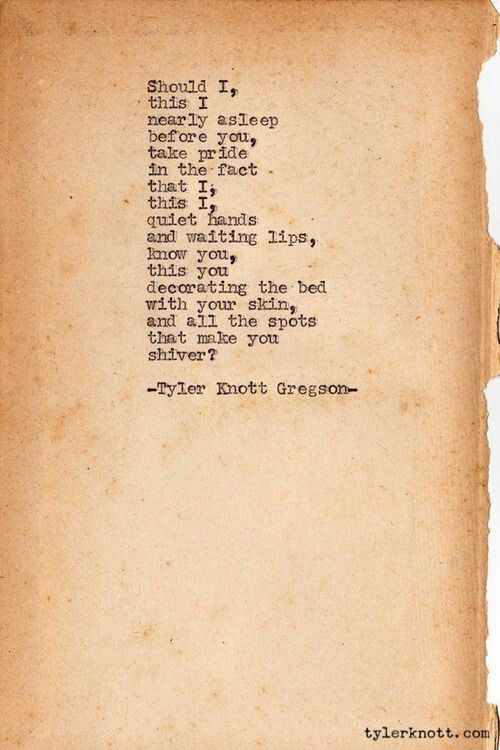 Should I,
this I
nearly asleep
before you,
take pride
in the fact
that I,
this I,
quiet hands
and waiting lips,
know you,
this you
decorating the bed
with your skin,
and all the spots
that make you
shiver?
-Tyler Knott Gregson-
tylerknott.com